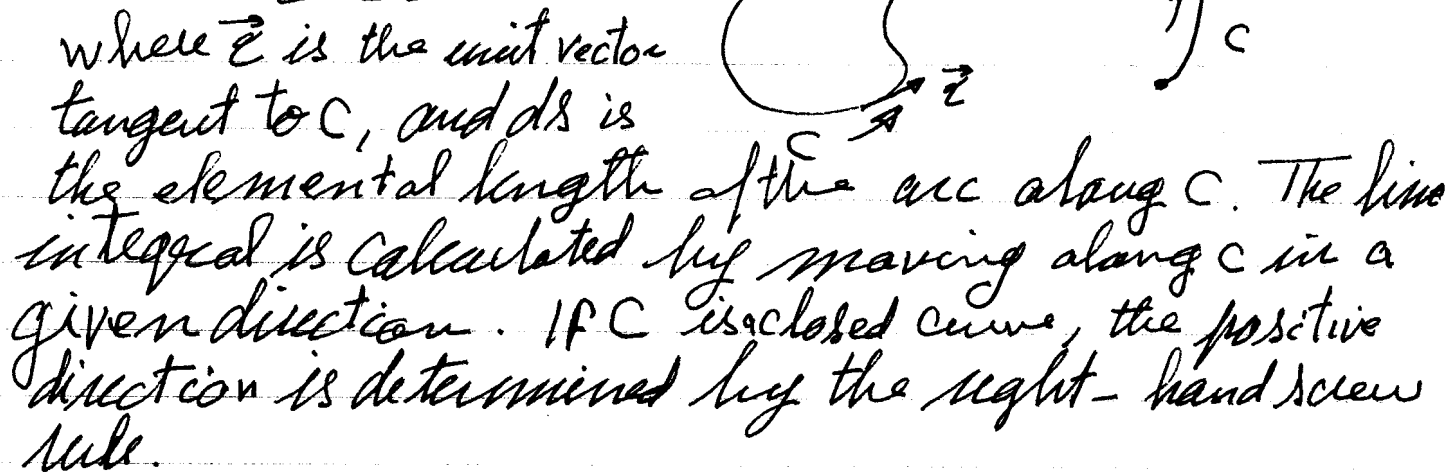 where $\vec{\tau}$ is the unit vector
tangent to C, and ds is
the elemental length of the arc along C. The line
integral is calculated by moving along C in a
given direction. If C is a closed curve, the positive
direction is determined by the right-hand screw
rule.
C
$\vec{\tau}$
C